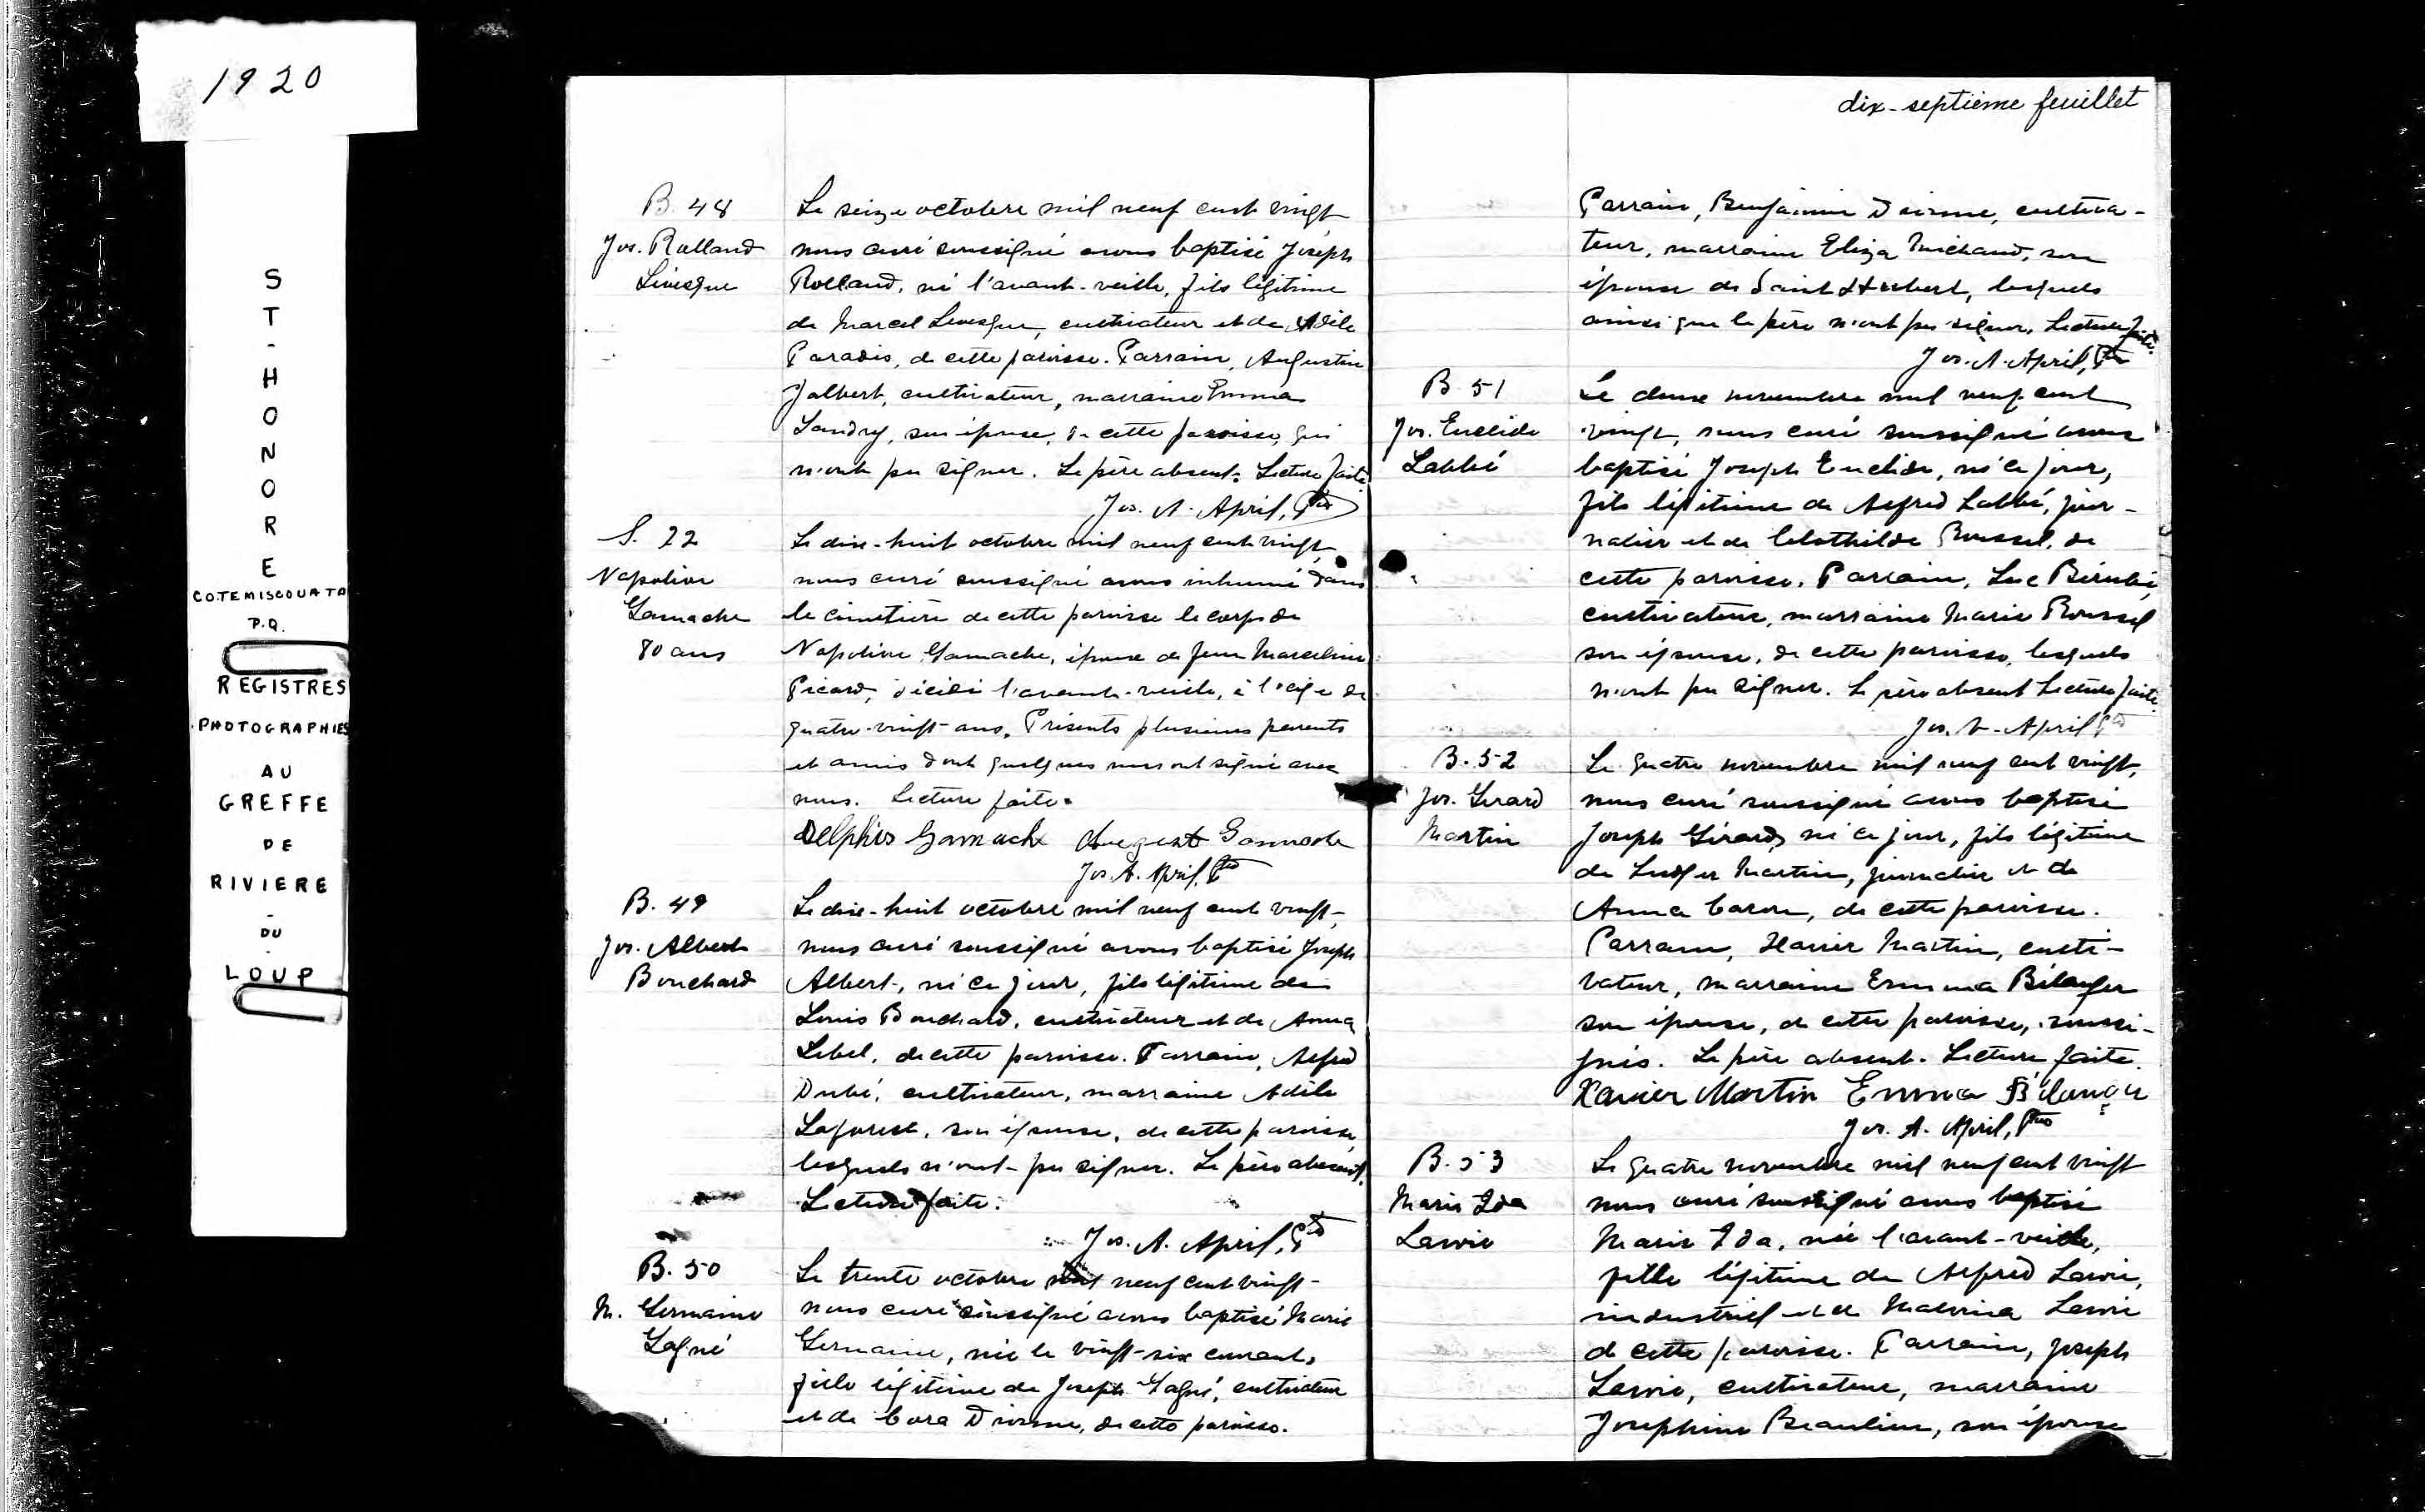 1920
ST-HONORE
CO.TEMISCOUATA
P.Q.
REGISTRES
PHOTOGRAPHIES
AU
GREFFE
DE
RIVIERE
-
DU
-
LOUP
B. 48
Jos. Rolland
Lévesque
Le seize octobre mil neuf cent vingt
nous curé soussigné avons baptisé Joseph
Rolland, né l'avant-veille, fils légitime
de Marcel Levesque, cultivateur et de Adèle
Paradis, de cette paroisse. Parrain, Augustin
Jalbert, cultivateur, marraine Emma
Landry, son épouse, de cette paroisse, qui
n'ont pu signer. Le père absent. Lecture faite
Jos. A. April, Ptre
S. 22
Napoléon
Gamache
80 ans
Le dix-huit octobre mil neuf cent vingt
nous curé soussigné avons inhumé dans
le cimetière de cette paroisse le corps de
Napoléon Gamache, époux de feue Marceline
Picard, décédé l'avant-veille, à l'âge de
quatre-vingt-ans. Présents plusieurs parents
et amis dont quelques uns ont signé avec
nous. Lecture faite.
Delphis Gamach August Gamache
Jos. A. April, Ptre
B. 49
Jos. Albert
Bouchard
Le dix-huit octobre mil neuf cent vingt-
nous curé soussigné avons baptisé Joseph
Albert, né ce jour, fils légitime de
Louis Bouchard, cultivateur et de Anna
Lebel, de cette paroisse. Parrain, Alfred
Dubé, cultivateur, marraine Adèle
Laforest, son épouse, de cette paroisse
lesquels n'ont pu signer. Le père absent.
Lecture faite.
Jos. A. April, Ptre
B. 50
M. Germaine
Gagné
Le trente octobre mil neuf cent vingt-
nous curé soussigné avons baptisé Marie
Germaine, née le vingt-six courant,
fille légitime de Joseph Gagné, cultivateur
et de Cora Dionne, de cette paroisse.
dix-septième feuillet
Parrain, Benjamin Dionne, cultiva-
teur, marraine Eliza Michaud, son
épouse de Saint Hubert, lesquels
ainsi que le père n'ont pu signer. Lecture faite.
Jos. A. April, Ptre
B. 51
Jos. Euclide
Labbé
Le deux novembre mil neuf cent
vingt, nous curé soussigné avons
baptisé Joseph Euclide, né ce jour,
fils légitime de Alfred Labbé, jour-
nalier et de Clothilde Roussel, de
cette paroisse. Parrain, Luc Bérubé,
cultivateur, marraine Marie Roussel
son épouse, de cette paroisse, lesquels
n'ont pu signer. Le père absent Lecture faite.
Jos. A. April Ptre
B. 52
Jos. Gérard
Martin
Le quatre novembre mil neuf cent vingt,
nous curé soussigné avons baptisé
Joseph Gérard, né ce jour, fils légitime
de Ludger Martin, journalier et de
Anna Caron, de cette paroisse.
Parrain, Xavier Martin, culti-
vateur, marraine Emma Bélanger
son épouse, de cette paroisse, soussi-
gnés. Le père absent. Lecture faite.
Xavier Martin Emma Bélanger
Jos. A. April, Ptre
B. 53
Marie Ida
Lavoie
Le quatre novembre mil neuf cent vingt
nous curé soussigné avons baptisé
Marie Ida, née l'avant-veille,
fille légitime de Alfred Lavoie,
industriel et de Malvina Lavoie
de cette paroisse. Parrain, Joseph
Lavoie, cultivateur, marraine
Josephine Beaulieu, son épouse